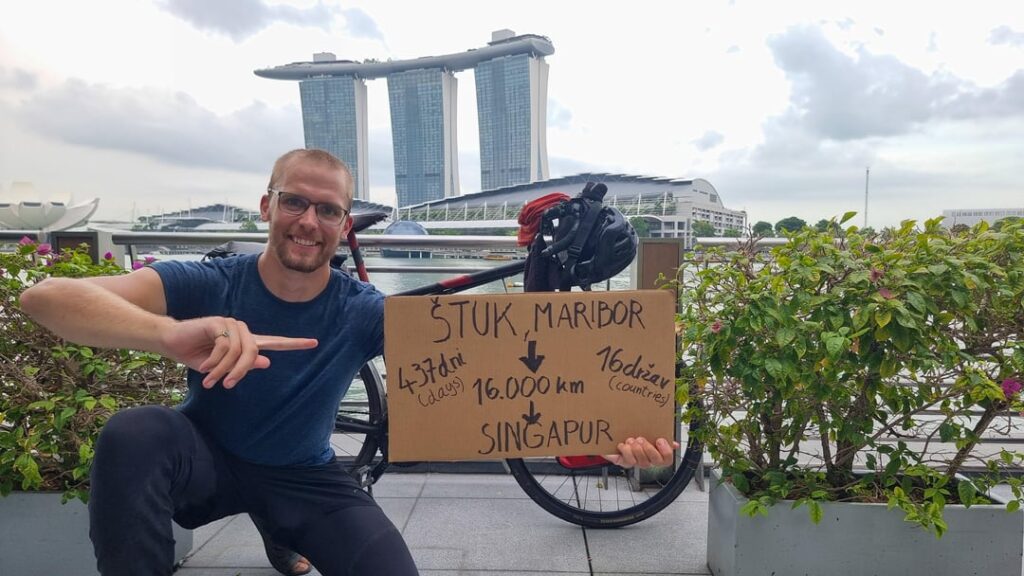 ŠTUK, MARIBOR
437dni
(days)
16.000 km
16držav
(countries)
SINGAPUR